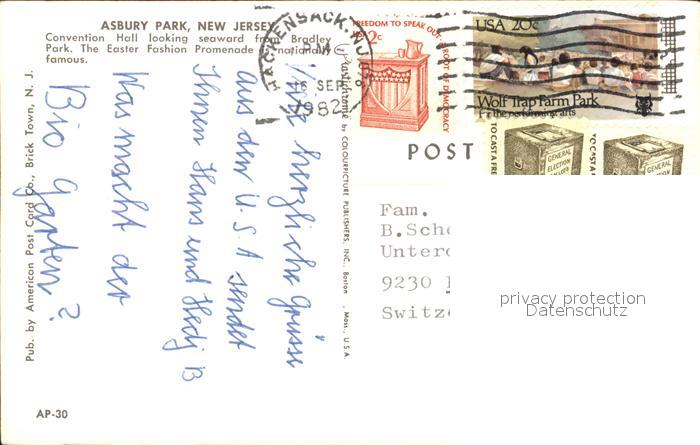 ASBURY PARK, NEW JERSEY
Convention Hall looking seaward from Bradley
Park. The Easter Fashion Promenade is nationally
famous.
HACKENSACK, NJ
16 SEP
1982
FREEDOM TO SPEAK OUT
A ROOT OF DEMOCRACY
USA 20c
Wolf Trap Farm Park
For the performing arts
TO CAST A FREE
GENERAL
ELECTION
TO CAST A
GENERAL
ELECTION
POST
Fam.
B.Sche
Untero
9230
Switze
privacy protection
Datenschutz
herzliche Grüsse
aus der U.S.A sendet
Ihnen Hans und Hedj B
Was macht der
Bio Garten?
Plastichrome by COLOURPICTURE PUBLISHERS, INC., Boston, Mass., U.S.A.
Pub. by American Post Card Co., Brick Town, N. J.
AP-30